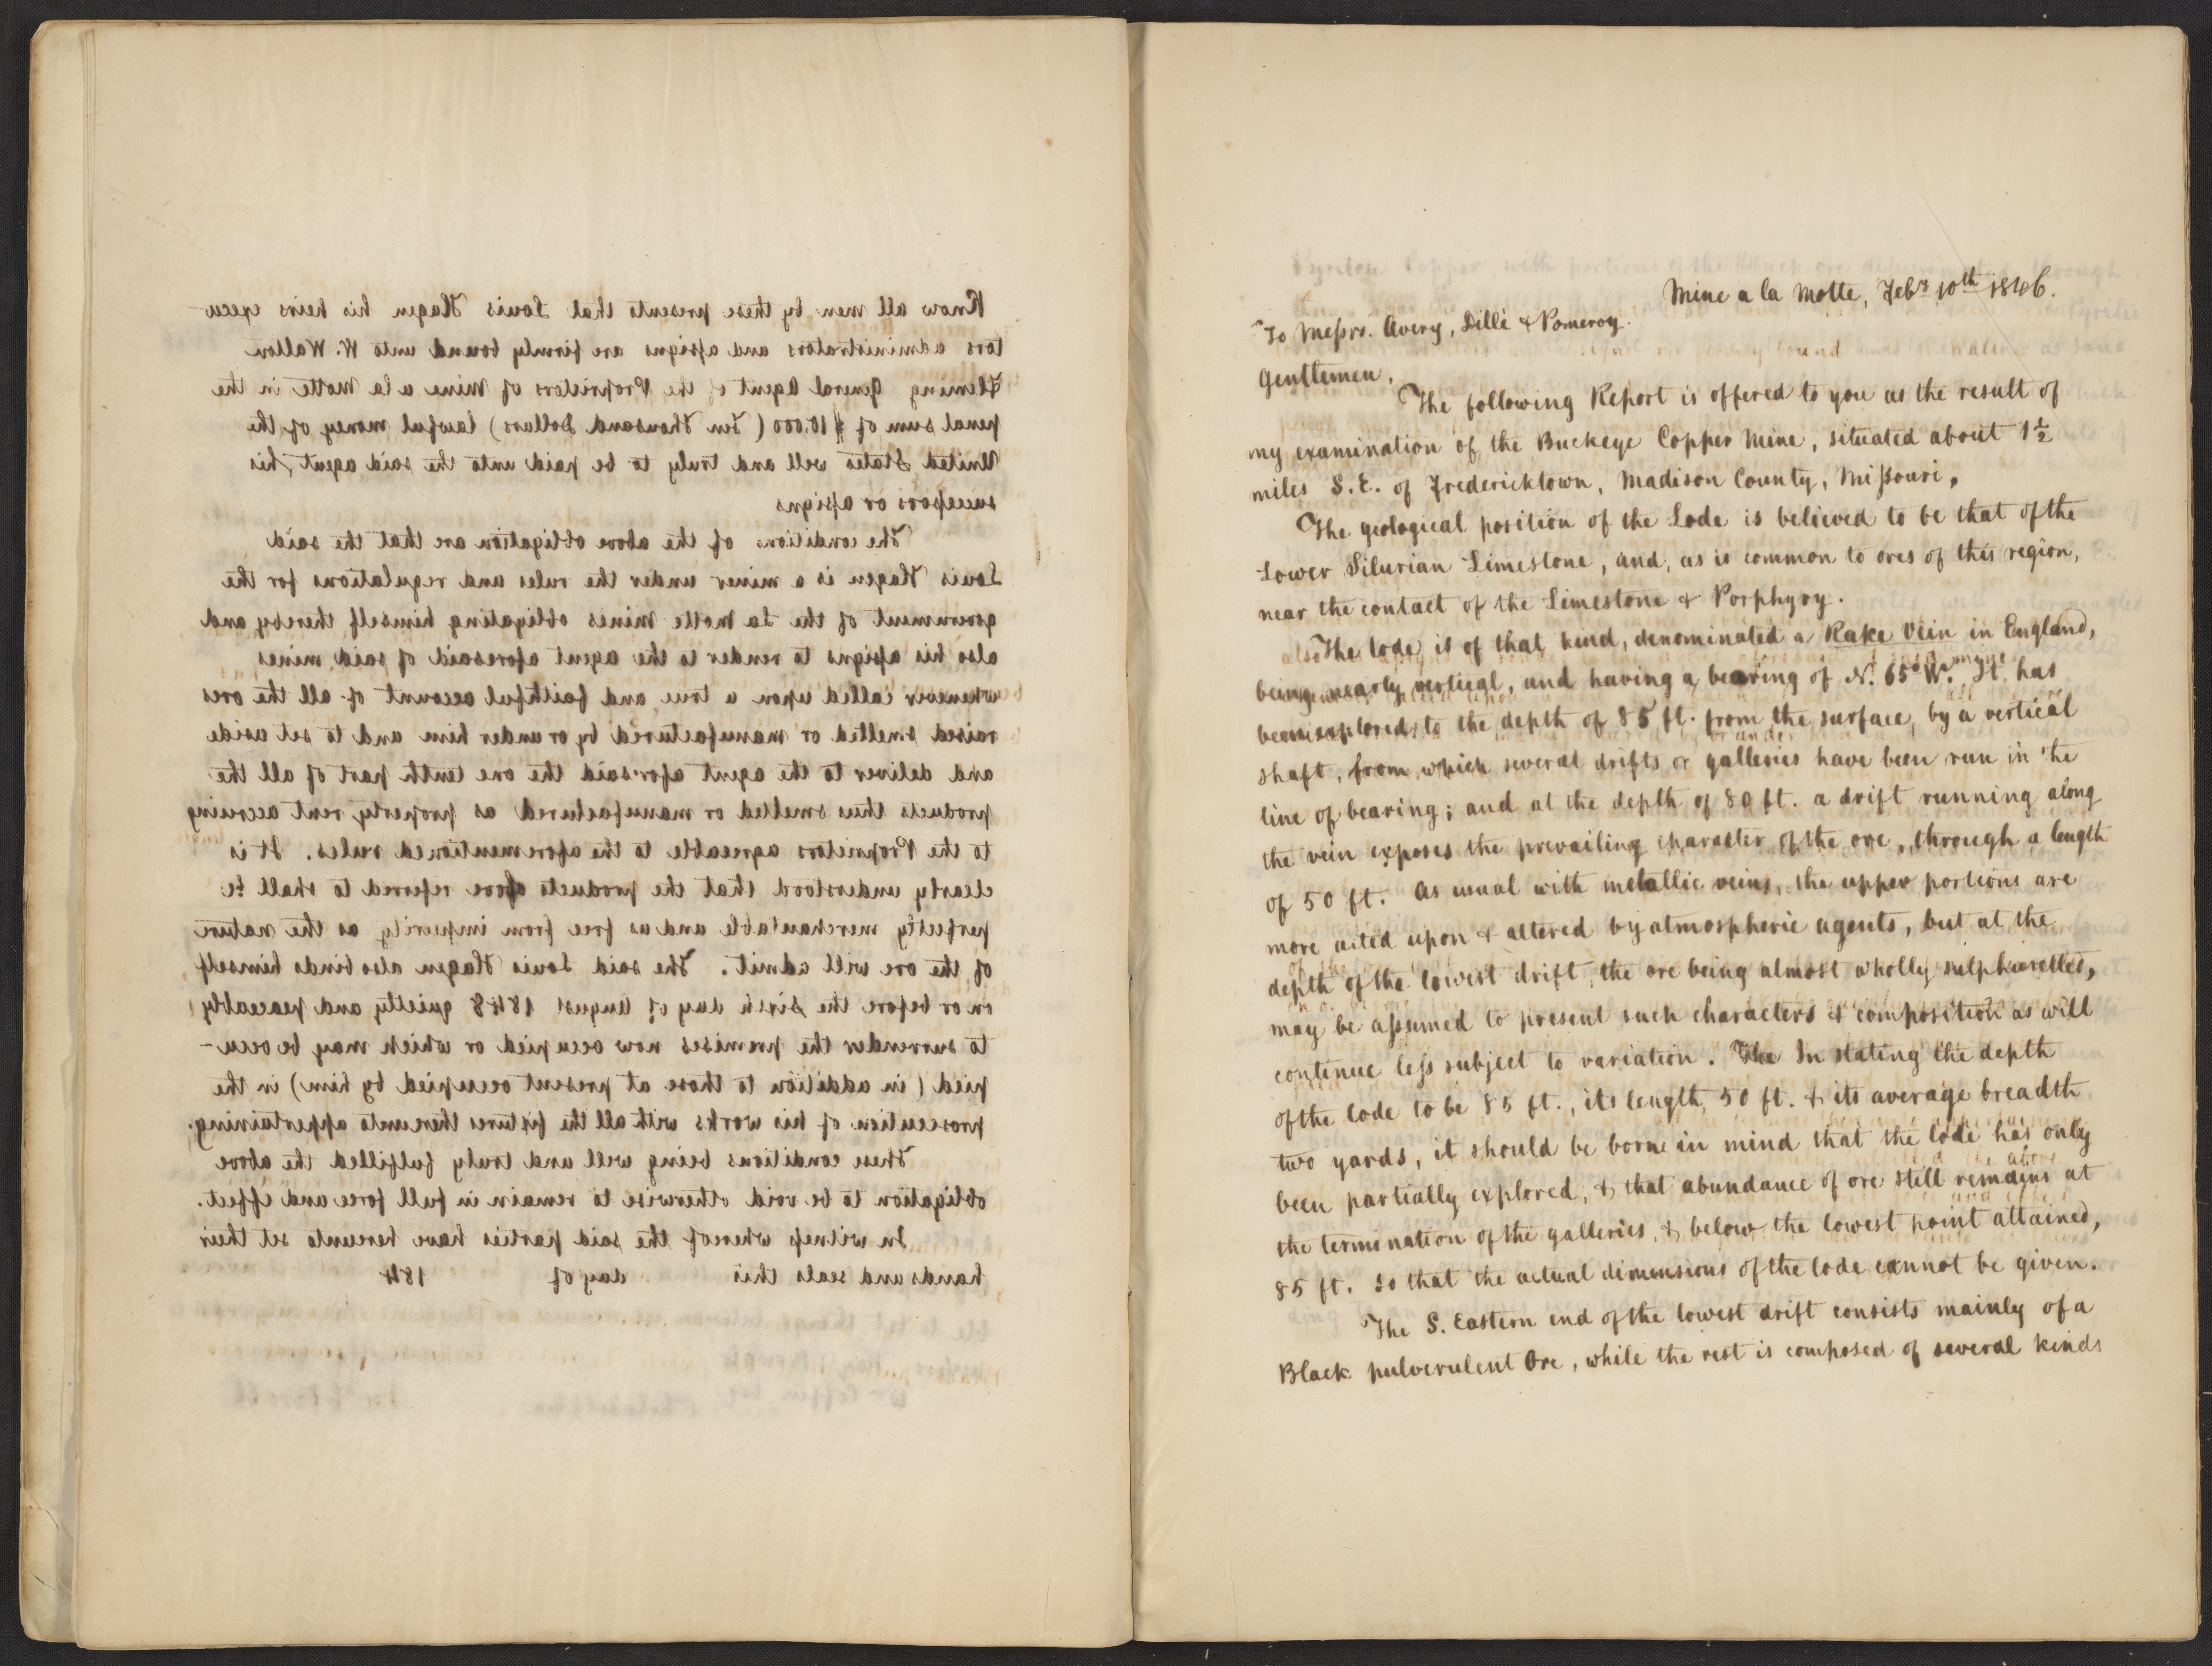 Know all men by these presents that Louis Hagen his heirs execu-
tors administrators and assigns are firmly bound unto W. Wallon
Fleming General Agent of the Proprietors of Mine a la Motte in the
penal sum of $10.000 (Ten Thousand Dollars) lawful money of the
United States well and truly to be paid unto the said agent, his
successors or assigns
The conditions of the above obligation are that the said
Louis Hagen is a miner under the rules and regulations for the
government of the La Motte Mines obligating himself thereby and
also his assigns to render to the agent aforesaid of said mines
whenever called upon a true and faithful account of all the ores
raised smelted or manufactured by or under him and to set aside
and deliver to the agent aforesaid the one tenth part of all the
products thus smelted or manufactured as property rent accruing
to the Proprietors agreeable to the aforementioned rules. It is
clearly understood that the products above referred to shall be
perfectly merchantable and as free from impurity as the nature
of the ore will admit. The said Louis Hagen also binds himself
on or before the sixth day of August 1848 quietly and peaceably
to surrender the premises now occupied or which may be occu-
pied (in addition to those at present occupied by him) in the
prosecution of his works with all the fixtures thereunto appertaining.
These conditions being well and truly fulfilled the above
obligation to be void otherwise to remain in full force and effect.
In witness whereof the said parties have hereunto set their
hands and seals this day of 184
Mine a la Motte, Feby 10th 1846.
To Messrs. Avery, Dille & Pomeroy.
Gentlemen,
The following Report is offered to you as the result of
my examination of the Buckeye Copper Mine, situated about 1½
miles S.E. of Fredericktown, Madison County, Missouri,
The geological position of the Lode is believed to be that of the
Lower Silurian Limestone, and, as is common to ores of this region,
near the contact of the Limestone & Porphyry.
The lode is of that kind, denominated a Rake Vein in England,
being nearly vertical, and having a bearing of N. 65° W. It has
been explored to the depth of 85 ft. from the surface, by a vertical
shaft, from which several drifts or galleries have been run in the
line of bearing; and at the depth of 80 ft. a drift running along
the vein exposes the prevailing character of the ore, through a length
of 50 ft. As usual with metallic veins, the upper portions are
more acted upon & altered by atmospheric agents, but at the
depth of the lowest drift, the ore being almost wholly sulphuretted,
may be assumed to present such characters & composition as will
continue less subject to variation. The In stating the depth
of the lode to be 85 ft., its length, 50 ft. & its average breadth
two yards, it should be borne in mind that the lode has only
been partially explored, & that abundance of ore still remains at
the termination of the galleries, & below the lowest point attained,
85 ft. so that the actual dimensions of the lode cannot be given.
The S. Eastern end of the lowest drift consists mainly of a
Black pulverulent Ore, while the rest is composed of several kinds